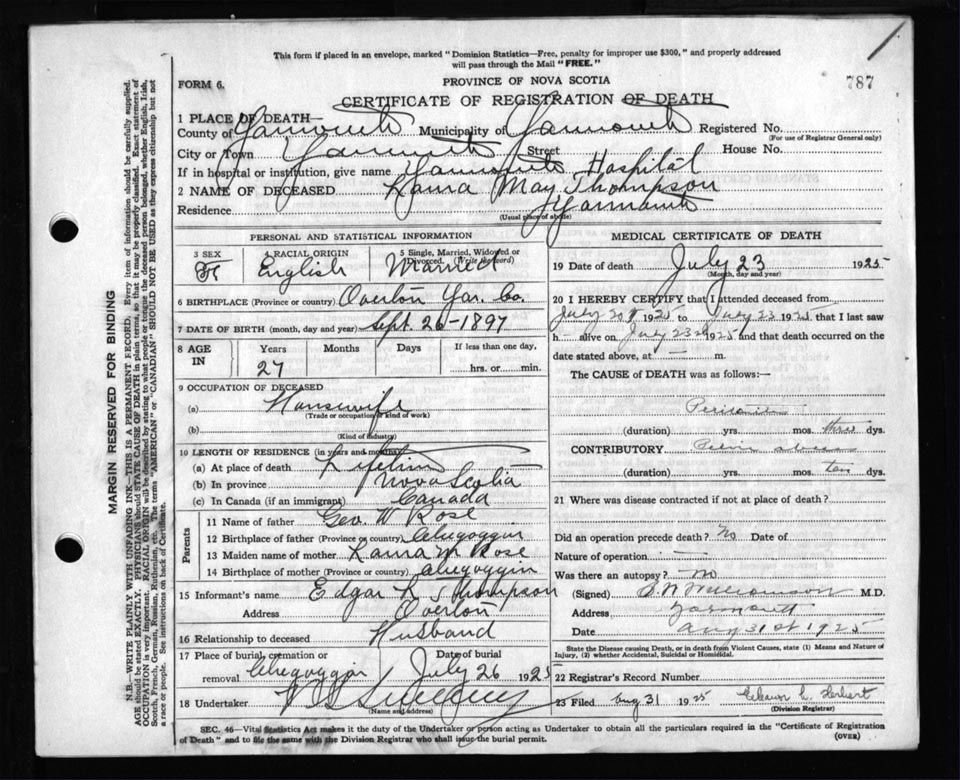 This form if placed in an envelope, marked "Dominion Statistics—Free, penalty for improper use $300," and properly addressed
will pass through the Mail "FREE."
FORM 6.
PROVINCE OF NOVA SCOTIA
787
CERTIFICATE OF REGISTRATION OF DEATH
1 PLACE OF DEATH—
County of Yarmouth Municipality of Yarmouth Registered No.
(For use of Registrar General only)
City or Town Yarmouth Street House No.
If in hospital or institution, give name Yarmouth Hospital
2 NAME OF DECEASED Laura May Thompson
Residence Yarmouth
(Usual place of abode)
PERSONAL AND STATISTICAL INFORMATION
3 SEX F
4 RACIAL ORIGIN English
5 Single, Married, Widowed or Divorced. (Write the word) Married
6 BIRTHPLACE (Province or country) Overton Yar. Co.
7 DATE OF BIRTH (month, day and year) Sept. 26-1897
8 AGE IN Years Months Days If less than one day,
27 hrs. or min.
9 OCCUPATION OF DECEASED
(a) Housewife
(Trade or occupation or kind of work)
(b)
(Kind of industry)
10 LENGTH OF RESIDENCE (in years and months)
(a) At place of death Lifetime
(b) In province Nova Scotia
(c) In Canada (if an immigrant) Canada
Parents
11 Name of father Geo. W Rose
12 Birthplace of father (Province or country) Chegoggin
13 Maiden name of mother Laura M Rose
14 Birthplace of mother (Province or country) Chegoggin
15 Informant's name Edgar Thompson
Address Overton
16 Relationship to deceased Husband
17 Place of burial, cremation or removal Chegoggin
Date of burial July 26 1925
18 Undertaker Sweeney
(Name and address)
MEDICAL CERTIFICATE OF DEATH
19 Date of death July 23 1925
(Month, day and year)
20 I HEREBY CERTIFY that I attended deceased from
July 20 1925 to July 23 1925, that I last saw
h alive on July 23 1925 and that death occurred on the
date stated above, at — m.
The CAUSE of DEATH was as follows:—
Peritonitis
(duration) yrs. mos. three dys.
CONTRIBUTORY Pelvic abscess
(duration) yrs. mos. ten dys.
21 Where was disease contracted if not at place of death?
Did an operation precede death? No Date of
Nature of operation —
Was there an autopsy? no
(Signed) Williamson M.D.
Address Yarmouth
Date Aug 31st 1925
State the Disease causing Death, or in death from Violent Causes, state (1) Means and Nature of
Injury, (2) whether Accidental, Suicidal or Homicidal.
22 Registrar's Record Number
23 Filed Aug 31 1925 Herbert
(Division Registrar)
SEC. 46—Vital Statistics Act makes it the duty of the Undertaker or person acting as Undertaker to obtain all the particulars required in the "Certificate of Registration
of Death" and to file the same with the Division Registrar who shall issue the burial permit.
(OVER)
MARGIN RESERVED FOR BINDING
N.B.—WRITE PLAINLY WITH UNFADING INK—THIS IS A PERMANENT RECORD. Every item of information should be carefully supplied.
AGE should be stated EXACTLY. PHYSICIANS should STATE CAUSE OF DEATH in plain terms, so that it may be properly classified. Exact statement of
OCCUPATION is very important. RACIAL ORIGIN will be described by stating to what people or tongue the deceased person belonged, whether English, Irish,
Scotch, French, German, Russian, Ruthenian, etc. The terms "AMERICAN" or "CANADIAN" SHOULD NOT BE USED as they express citizenship but not
a race or people. See instructions on back of Certificate.